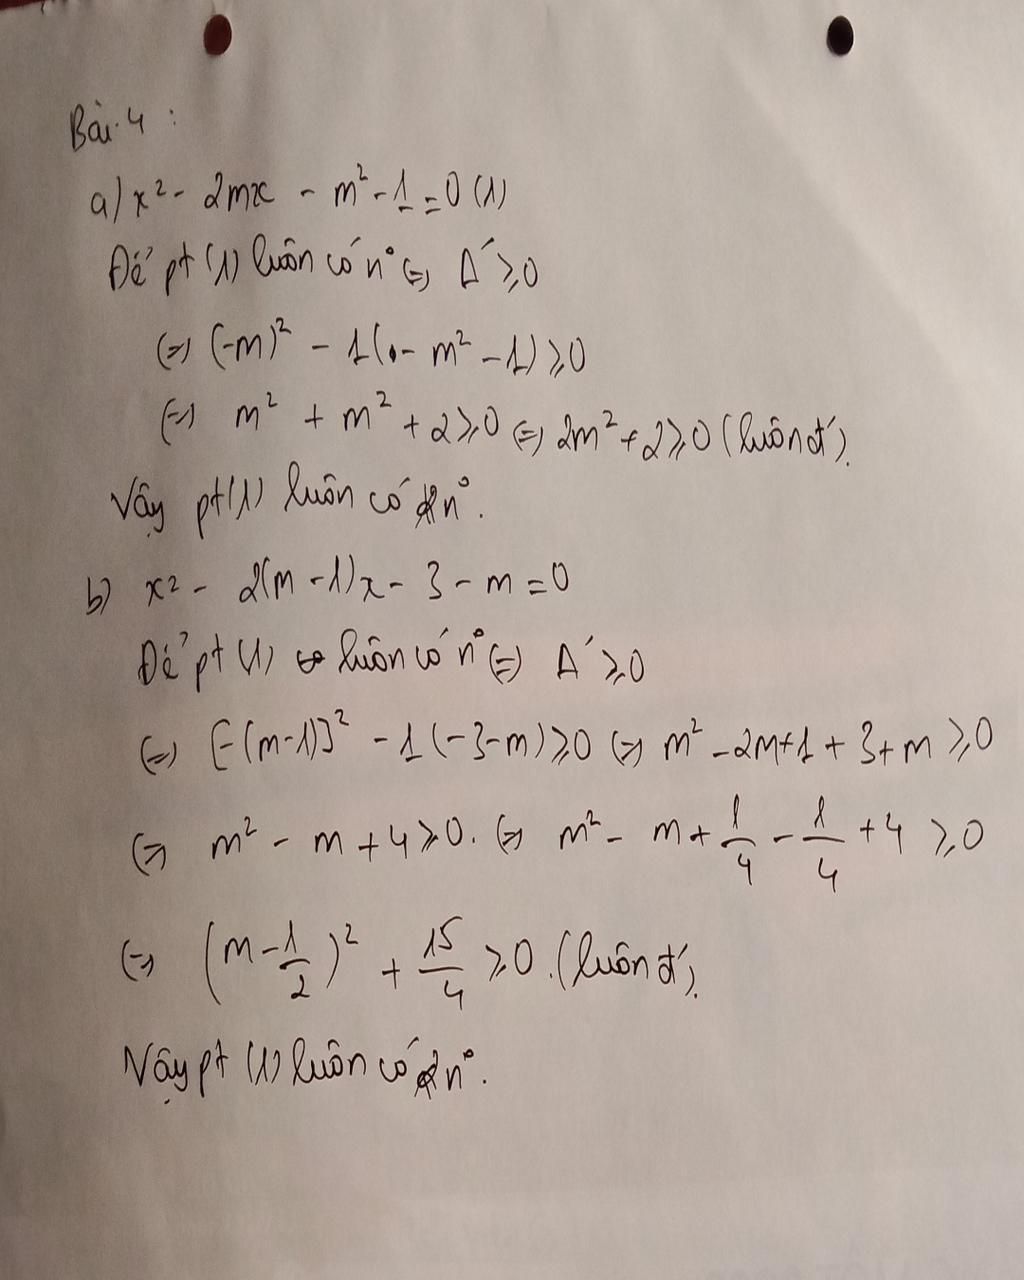 Bài 4 :
a) x² - 2mx - m² - 1 = 0 (1)
Để pt (1) luôn có n° (=) Δ' ≥ 0
(=) (-m)² - 1(- m² - 1) ≥ 0
(=) m² + m² + 2 ≥ 0 (=) 2m² + 2 ≥ 0 (luôn đ').
Vậy pt (1) luôn có n°.
b) x² - 2(m - 1)x - 3 - m = 0
Để pt (1) luôn có n° (=) Δ' ≥ 0
(=) [-(m-1)]² - 1(-3-m) ≥ 0 (=) m² - 2m + 1 + 3 + m ≥ 0
(=) m² - m + 4 ≥ 0. (=) m² - m + 1/4 - 1/4 + 4 ≥ 0
(=) (m - 1/2)² + 15/4 ≥ 0. (luôn đ').
Vậy pt (1) luôn có n°.